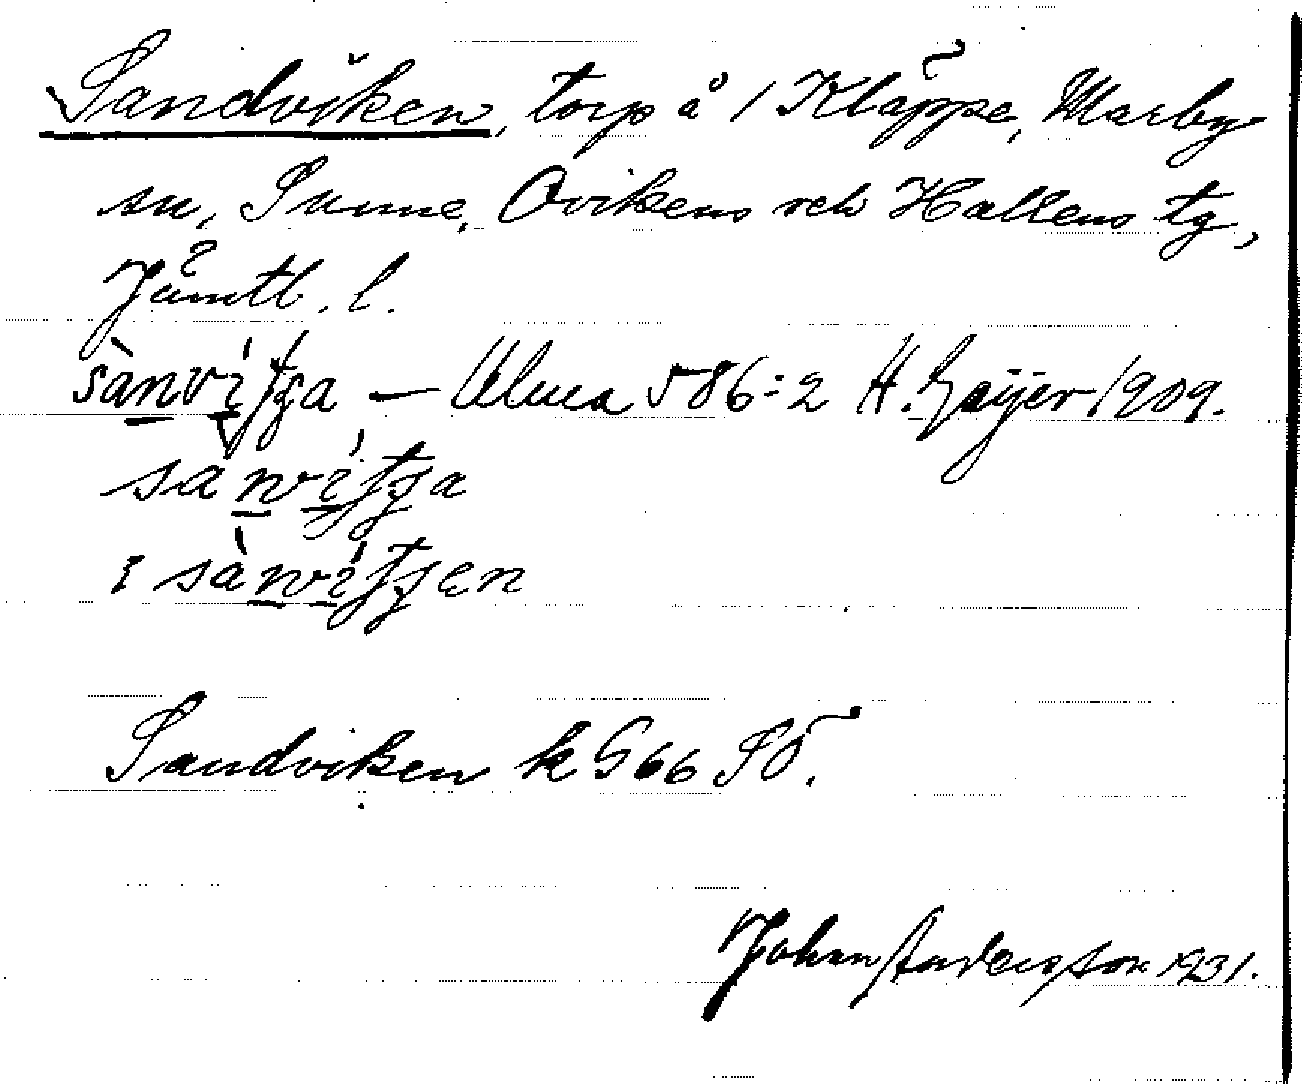 Sandviken, torp å 1 Kläppe, Marby
sn, Sunne, Ovikens och Hallens tg,
Jämtl. l.
sànvíʈʂa — Ulma 586:2 H. Geijer 1909.
sànvíʈʂa
i sànvíʈʂen
Sandviken k G66 SÖ.
Johan Andersson 1931.